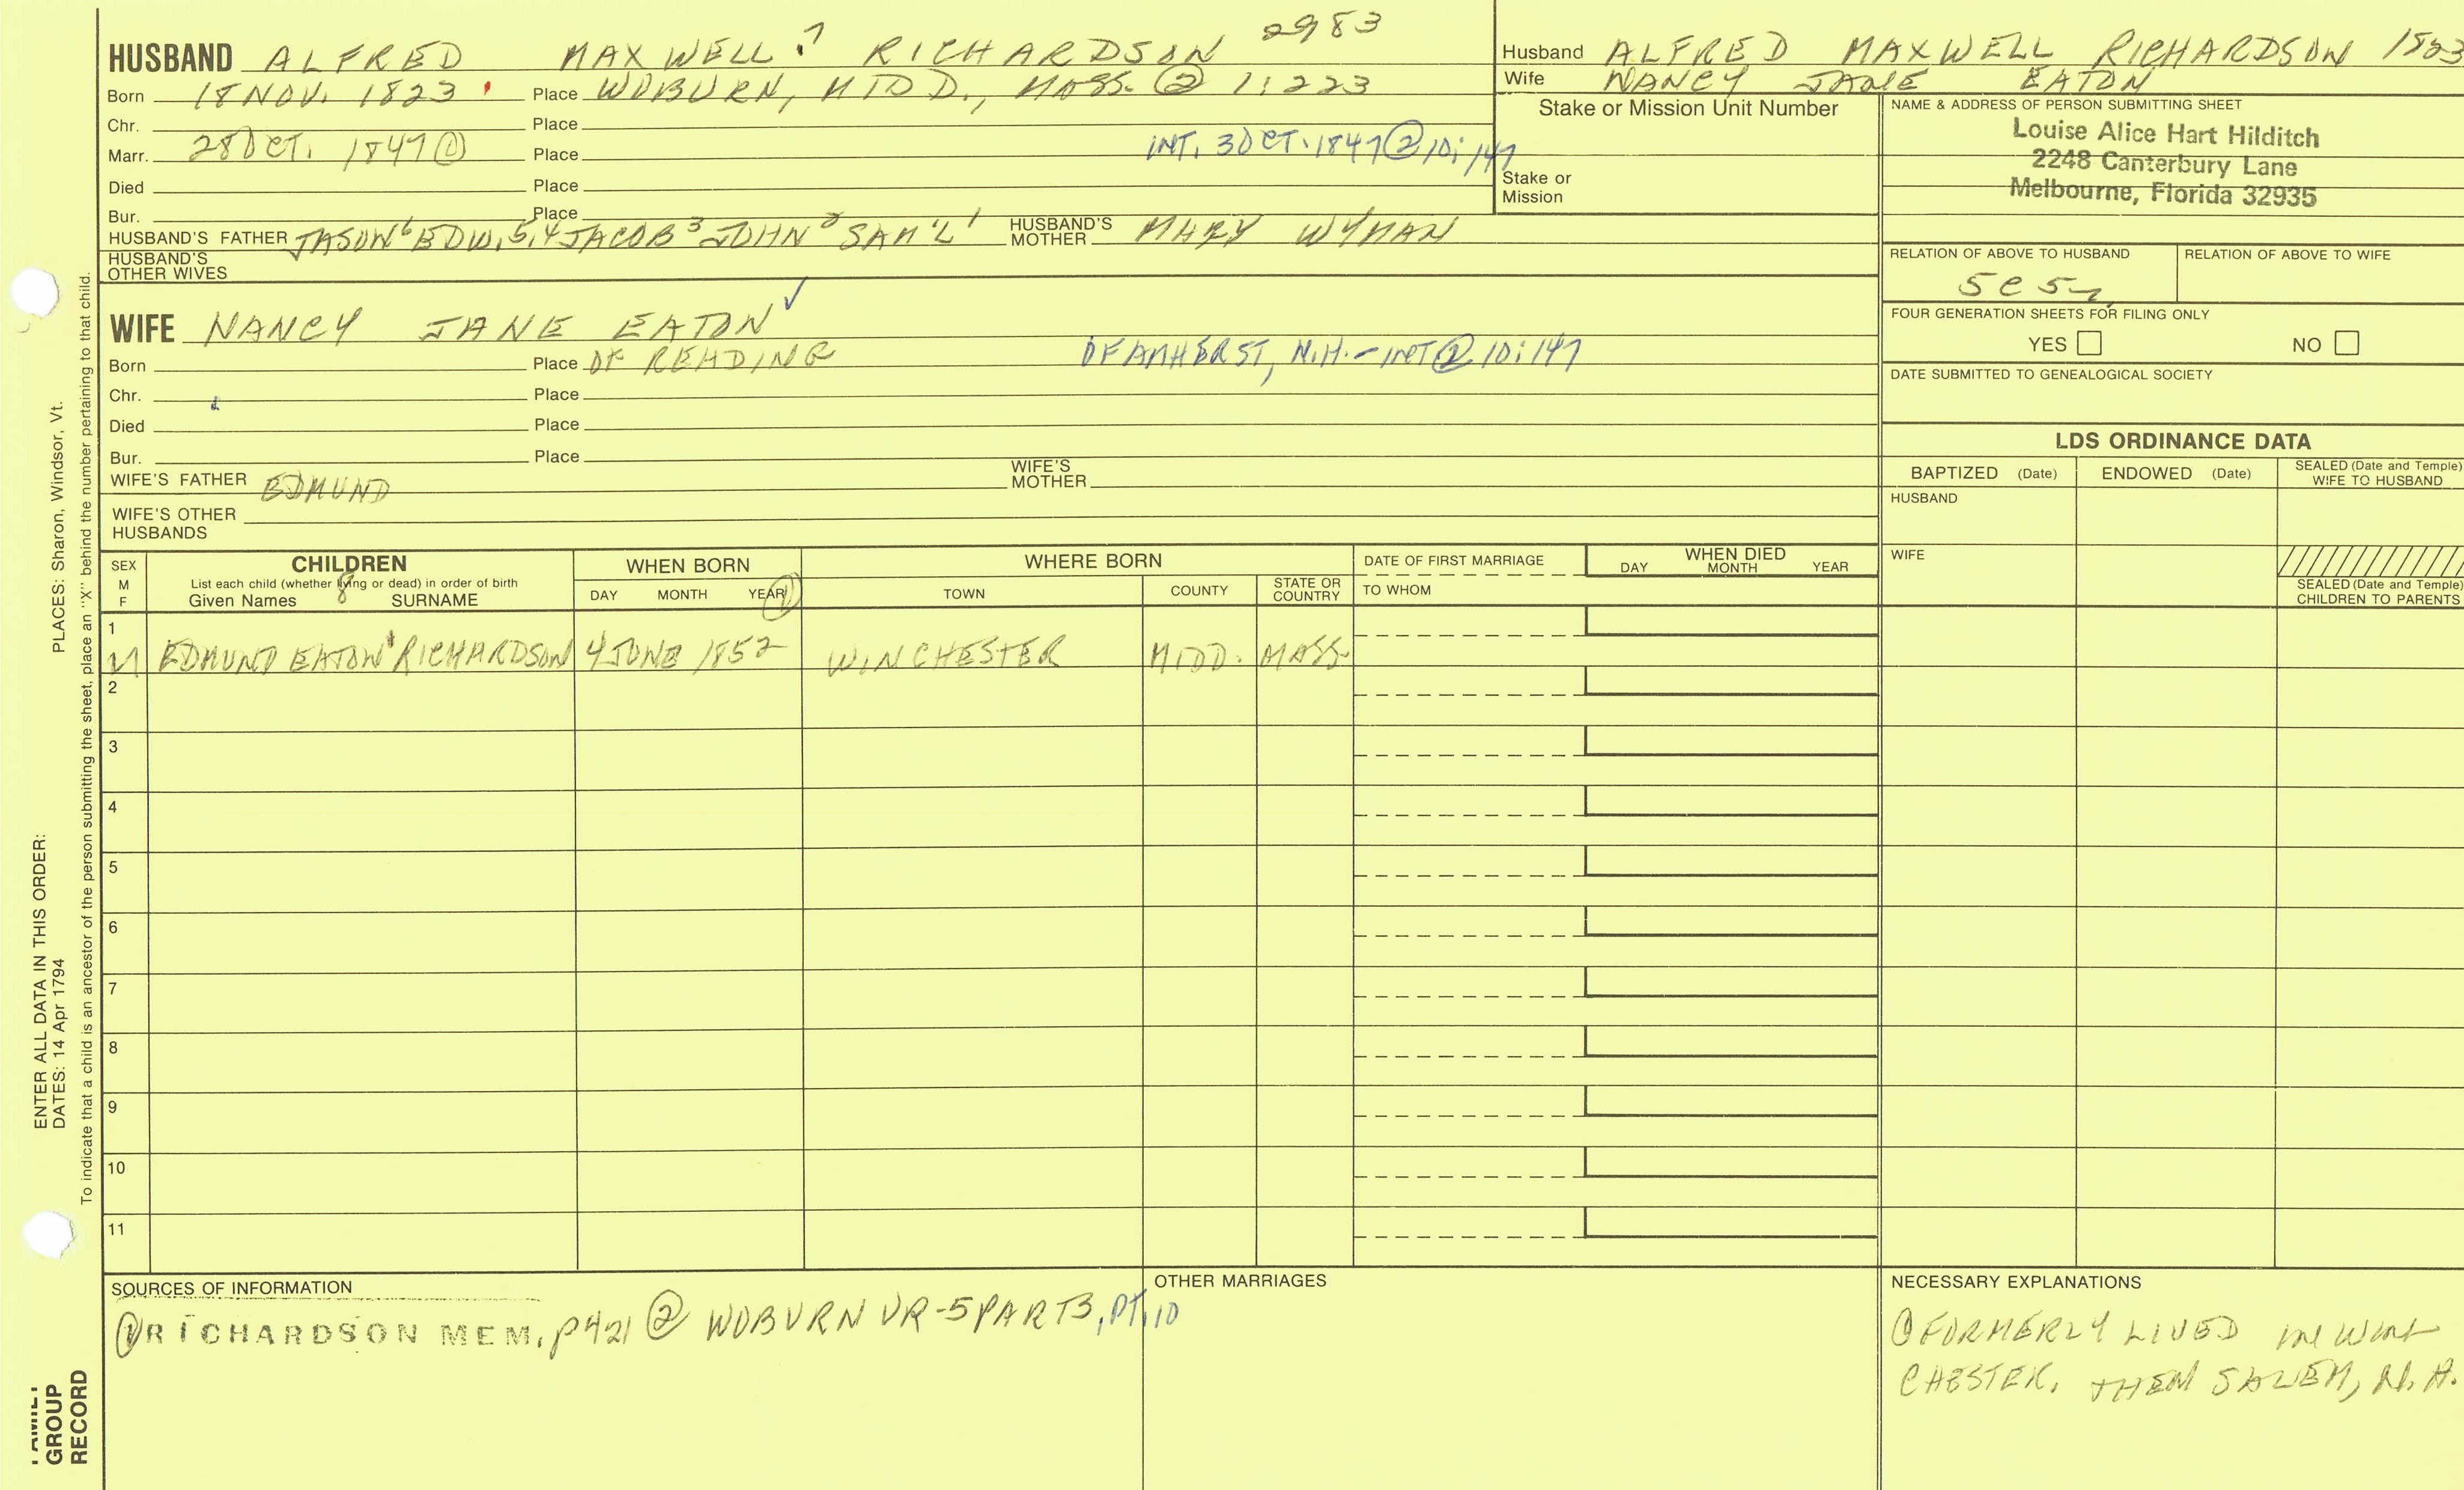 HUSBAND ALFRED MAXWELL 7 RICHARDSON 2983
Born 18 NOV. 1823 Place WOBURN, MIDD., MASS. @ 1:223
Chr. Place
Marr. 28 OCT. 1847 ① Place INT. 3 OCT. 1847 ② 10:147
Died Place
Bur. Place
HUSBAND'S FATHER JASON 6 EDW. 5,4 JACOB 3 JOHN 2 SAM'L 1 HUSBAND'S MOTHER MARY WYMAN
HUSBAND'S OTHER WIVES
WIFE NANCY JANE EATON ✓
Born Place OF READING OF AMHERST, N.H. - INT ② 10:147
Chr. Place
Died Place
Bur. Place
WIFE'S FATHER EDMUND WIFE'S MOTHER
WIFE'S OTHER HUSBANDS
Husband ALFRED MAXWELL RICHARDSON 1823
Wife NANCY JANE EATON
Stake or Mission Unit Number
Stake or Mission
NAME & ADDRESS OF PERSON SUBMITTING SHEET
Louise Alice Hart Hilditch
2248 Canterbury Lane
Melbourne, Florida 32935
RELATION OF ABOVE TO HUSBAND RELATION OF ABOVE TO WIFE
FOUR GENERATION SHEETS FOR FILING ONLY
YES NO
DATE SUBMITTED TO GENEALOGICAL SOCIETY
LDS ORDINANCE DATA
BAPTIZED (Date) ENDOWED (Date) SEALED (Date and Temple) WIFE TO HUSBAND
HUSBAND
WIFE
SEALED (Date and Temple) CHILDREN TO PARENTS
SEX M F CHILDREN WHEN BORN WHERE BORN DATE OF FIRST MARRIAGE WHEN DIED
List each child (whether living or dead) in order of birth
Given Names 8 SURNAME DAY MONTH YEAR ① TOWN COUNTY STATE OR COUNTRY TO WHOM DAY MONTH YEAR
1
M EDMUND EATON RICHARDSON 4 JUNE 1852 WINCHESTER MIDD. MASS.
2
3
4
5
6
7
8
9
10
11
SOURCES OF INFORMATION
① RICHARDSON MEM. p421 ② WOBURN VR-5 PART3, PT.10
OTHER MARRIAGES
NECESSARY EXPLANATIONS
① FORMERLY LIVED IN WIN
CHESTER. THEN SALEM, N.H.
PLACES: Sharon, Windsor, Vt.
ENTER ALL DATA IN THIS ORDER:
DATES: 14 Apr 1794
To indicate that a child is an ancestor of the person submitting the sheet, place an "X" behind the number pertaining to that child.
FAMILY
GROUP
RECORD